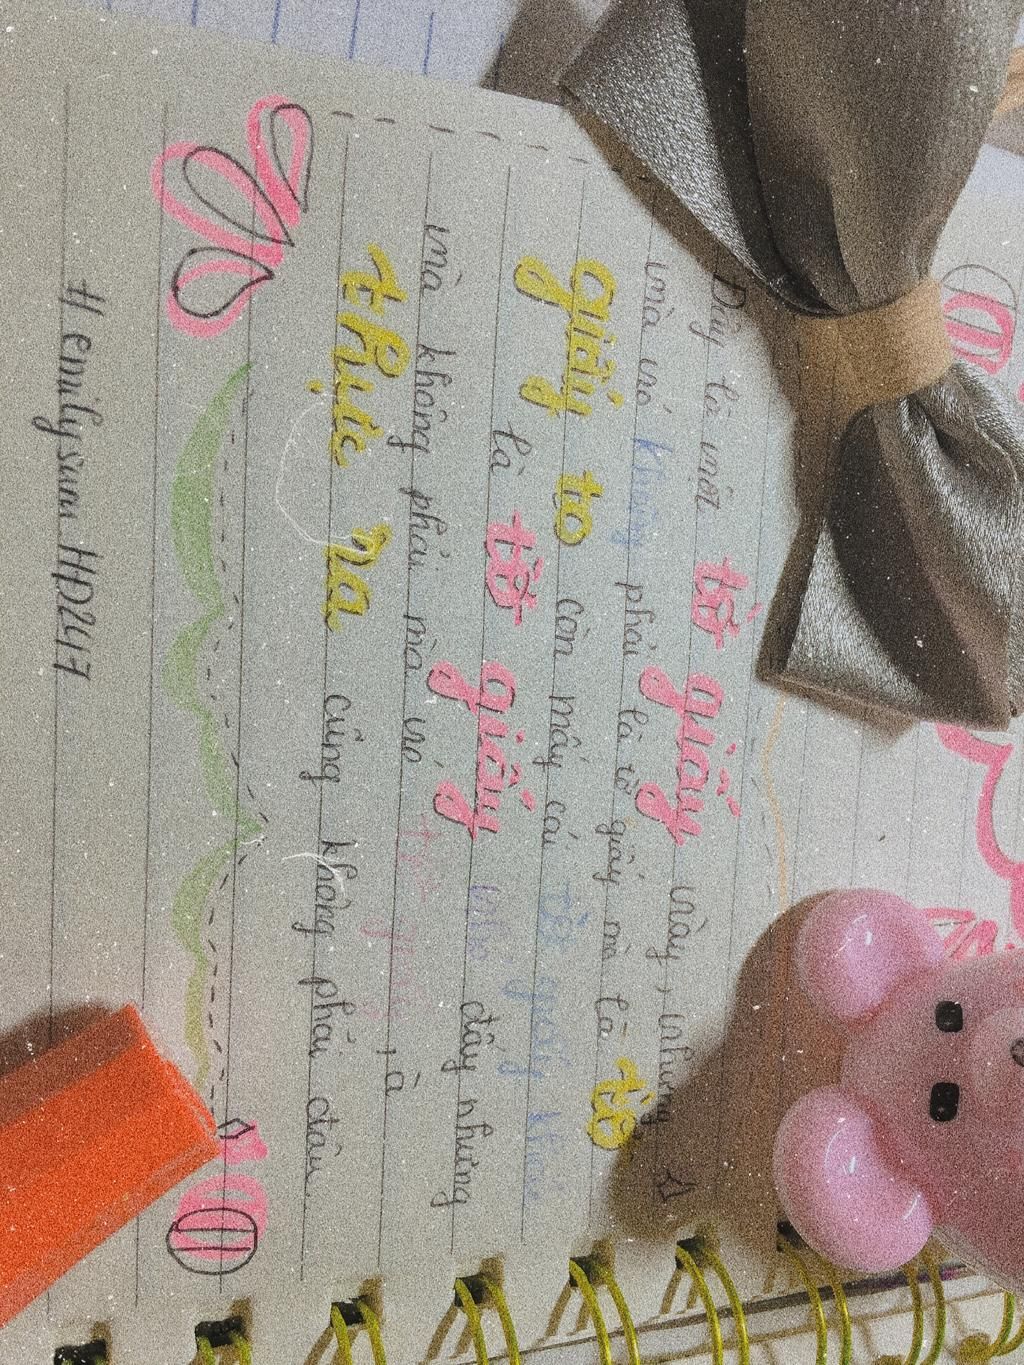 Đây là một tờ giấy này, nhưng
mà nó không phải là tờ giấy mà là tờ
giấy to còn mấy cái tờ giấy khác
là tờ giấy nhỏ đấy nhưng
mà không phải mà nó tờ giấy, à
thực ra cũng không phải đâu
# emilysun HD247